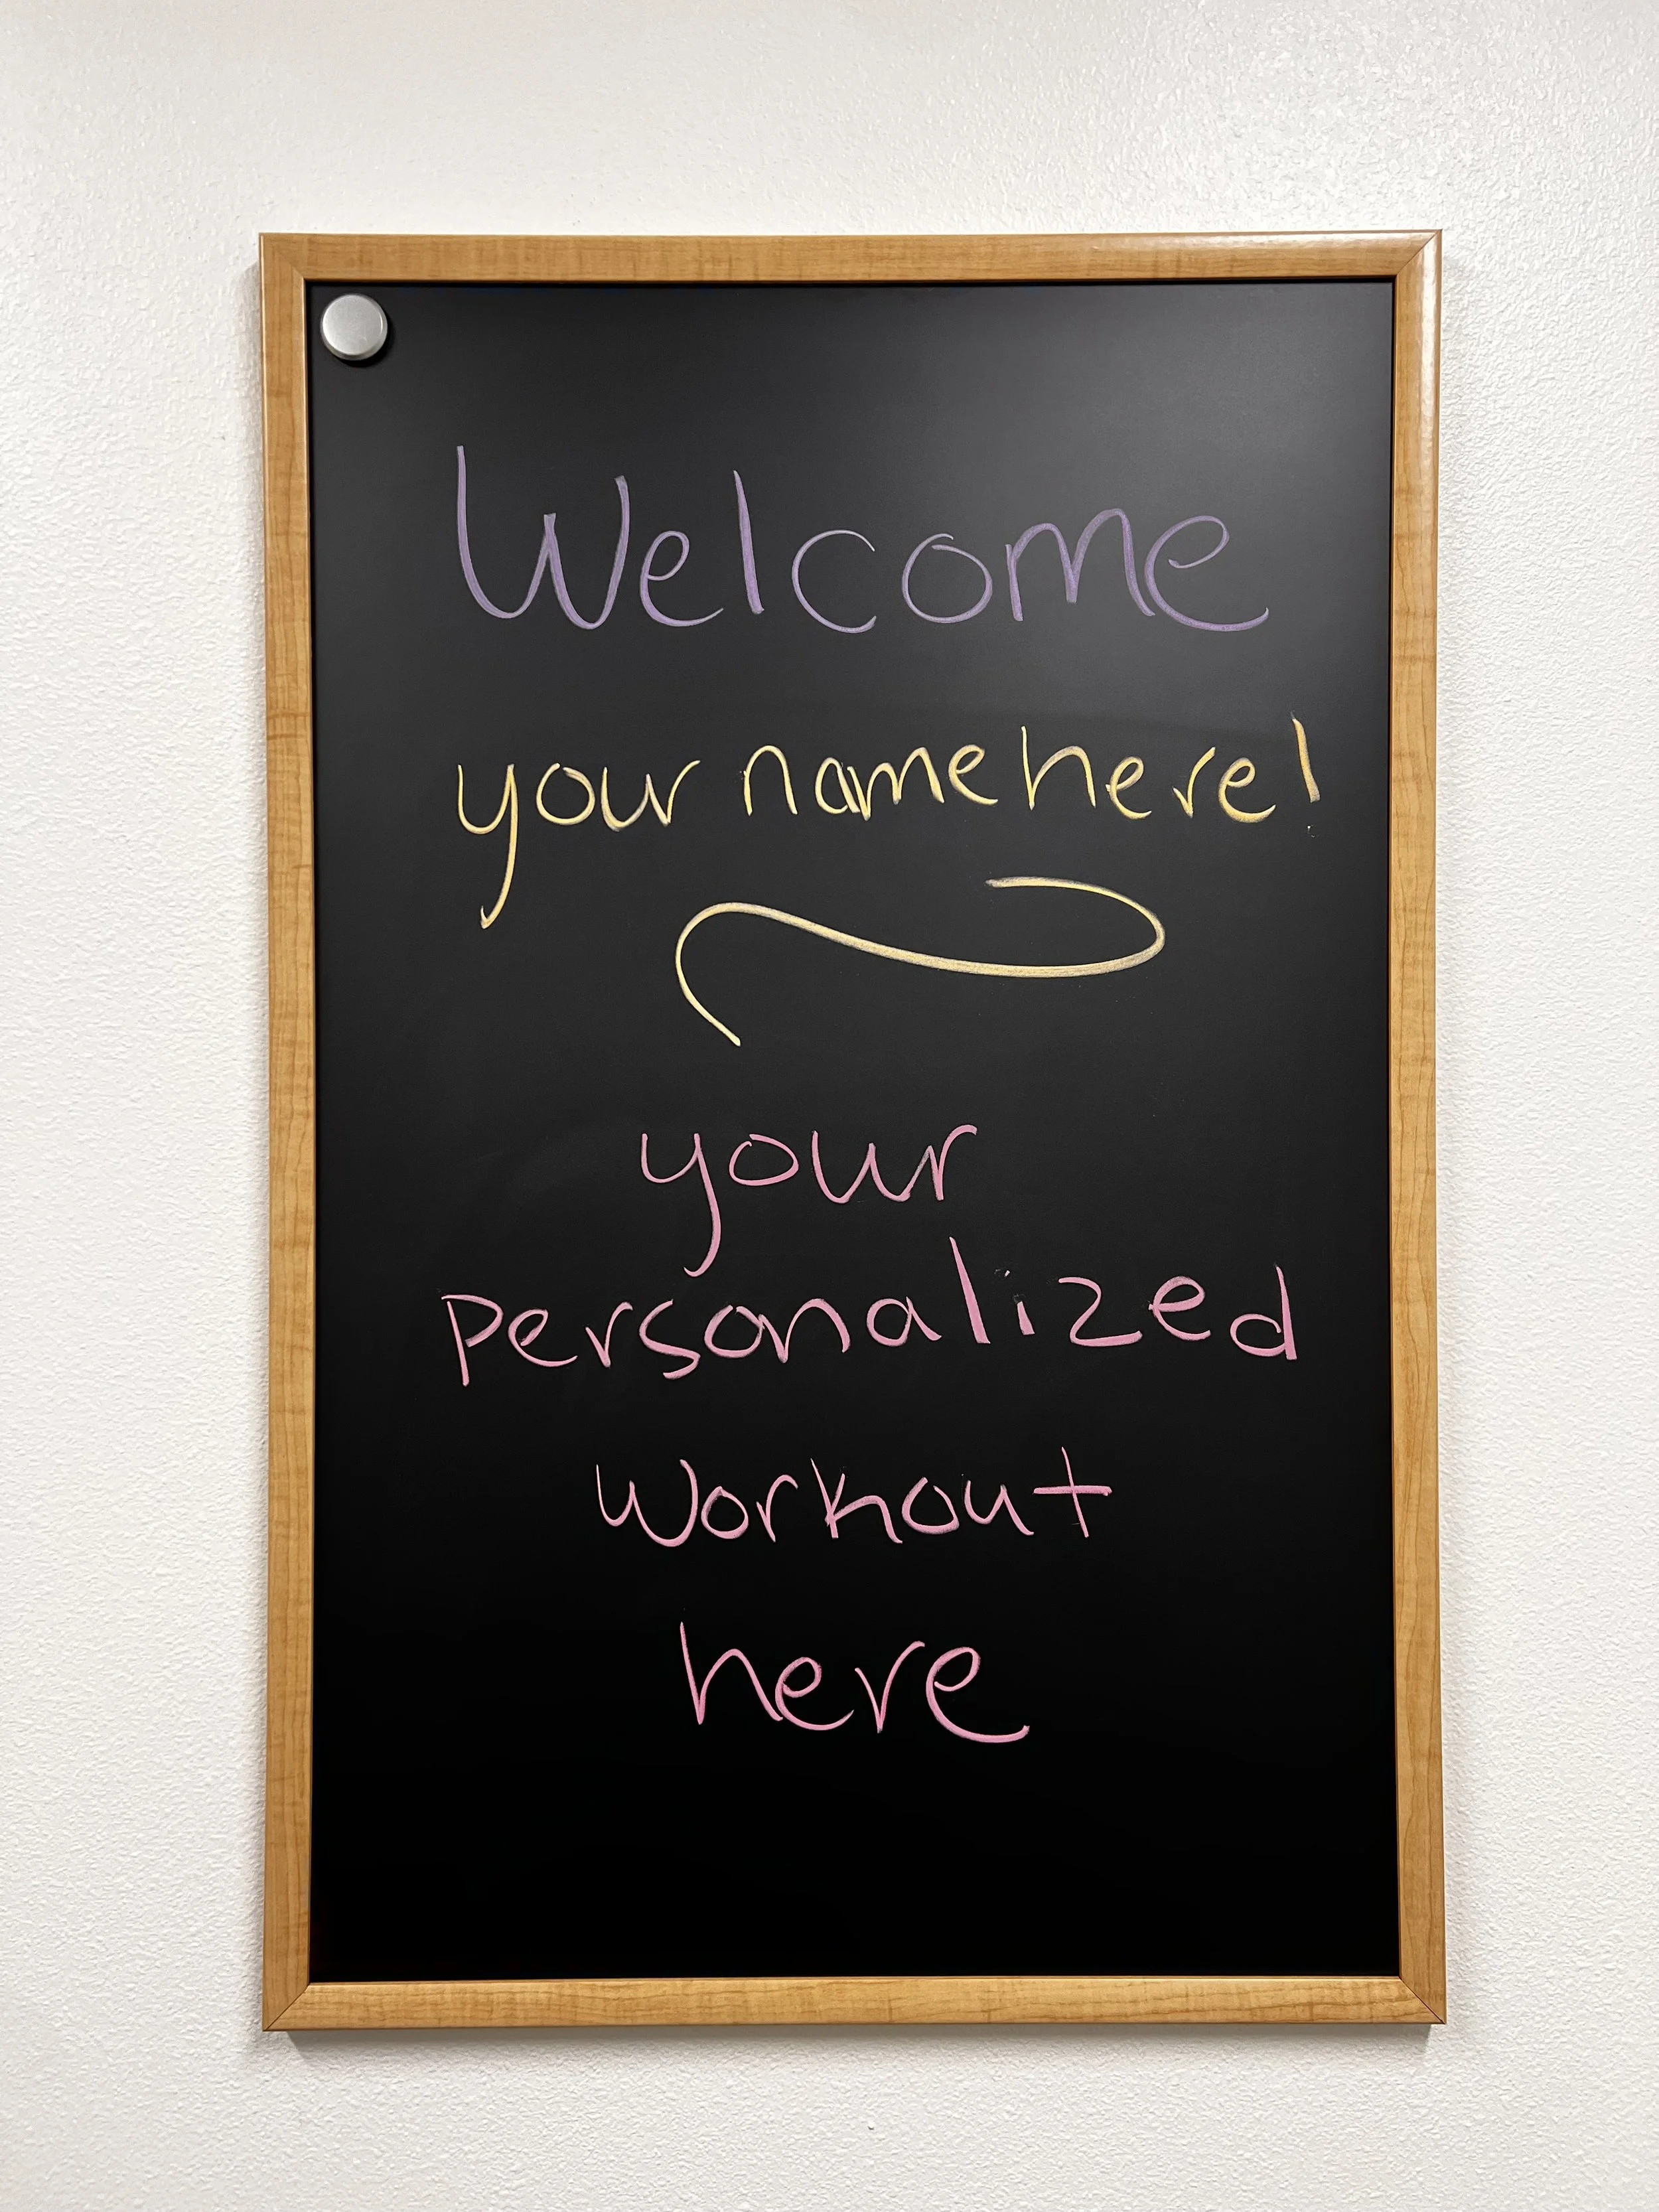 Welcome
your name here!
your
personalized
workout
here